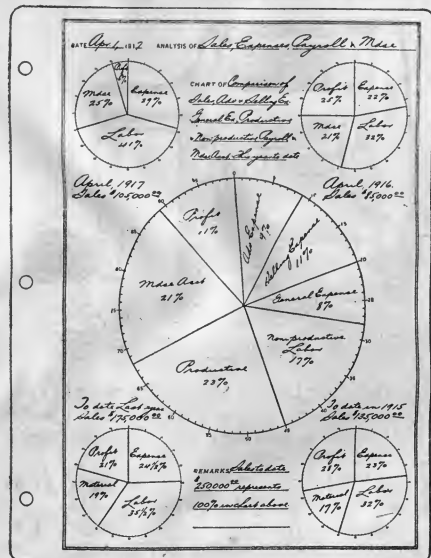 DATE Apr 4 1912 ANALYSIS OF Sales, Expenses, Payroll & Mdse
Profit
Expense
29%
Mdse
25%
Labor
41%
CHART OF Comparison of
Sales Adv & Selling Ex
General Ex, Productive
& Nonproductive Payroll &
Mdse Asst. This year to date
Profit
25%
Expense
22%
Mdse
21%
Labor
32%
April, 1917
Sales $105000.00
April, 1916.
Sales $85000.00
Profit
11%
Adv Expense
9%
Selling Expense
11%
General Expense
8%
Nonproductive
Labor
17%
Productive
23%
Mdse Asst
21%
To date Last year
Sales $175000.00
To date in 1915
Sales $135000.00
Profit
21%
Expense
24 1/2%
Material
19%
Labor
35 1/2%
REMARKS Sales to date
$250000.00 represents
100% in chart above
Profit
28%
Expense
23%
Material
17%
Labor
32%